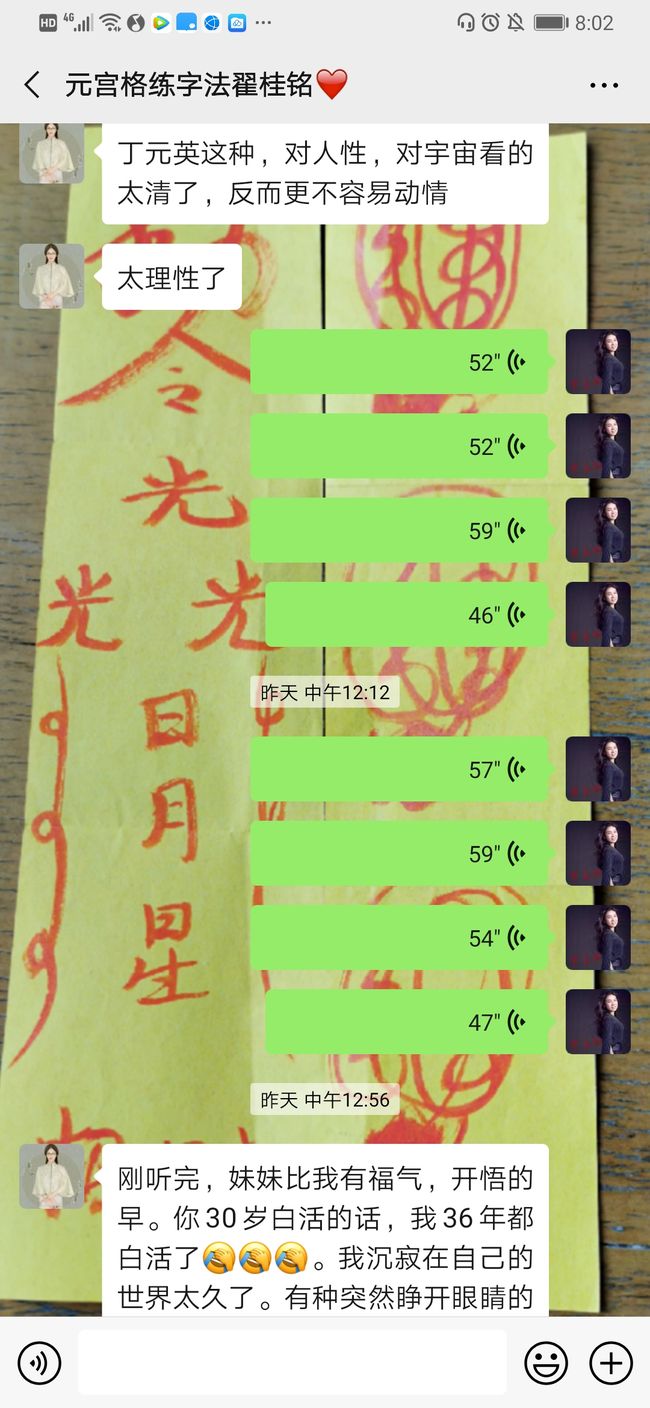 HD 4G 8:02
元宫格练字法翟桂铭❤️
丁元英这种，对人性，对宇宙看的
太清了，反而更不容易动情
太理性了
52"
52"
59"
46"
昨天 中午12:12
57"
59"
54"
47"
昨天 中午12:56
刚听完，妹妹比我有福气，开悟的
早。你30岁白活的话，我36年都
白活了🤦🤦🤦。我沉寂在自己的
世界太久了。有种突然睁开眼睛的
令
光
光 光
日
月
星